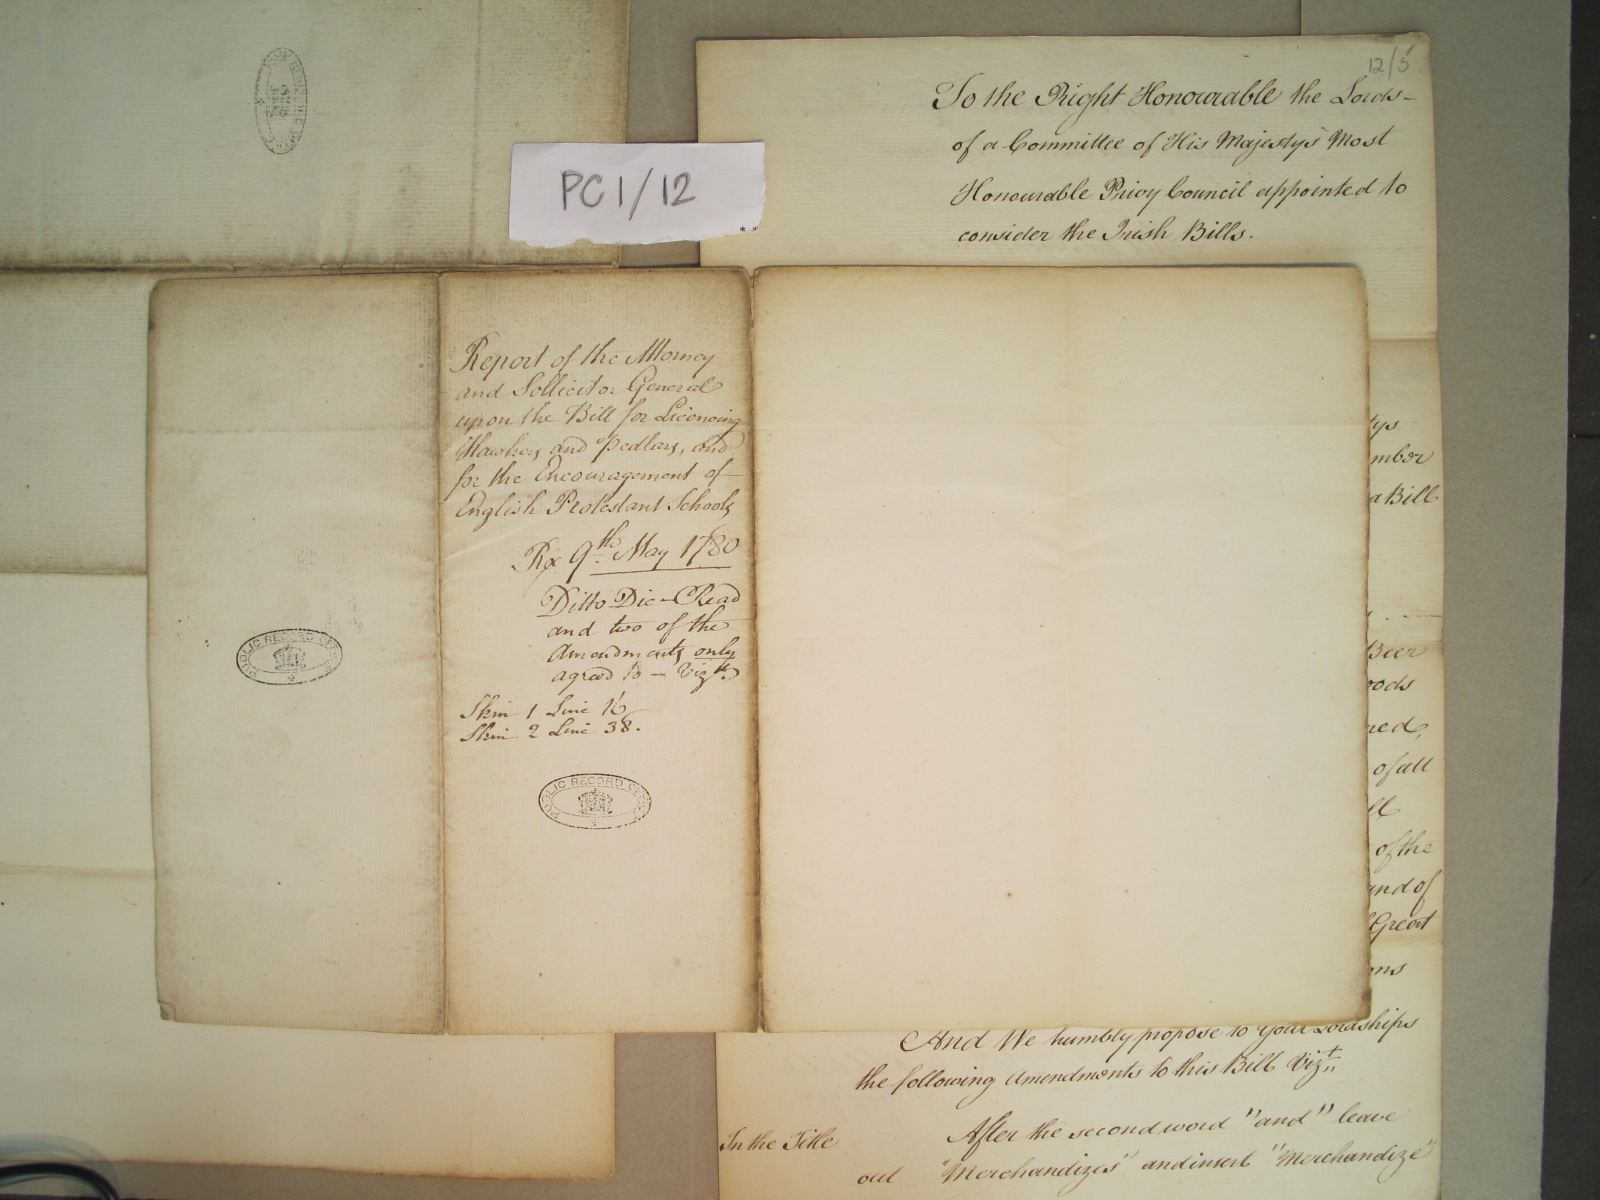 PC1/12
12/5
To the Right Honourable the Lords
of a Committee of His Majesty's Most
Honourable Privy Council appointed to
consider the Irish Bills.
Report of the Attorney
and Sollicitor General
upon the Bill for Licencing
Hawkers and Pedlars, and
for the Encouragement of
English Protestant Schools
Rx 9th May 1780
Ditto Die - Read
and two of the
Amendments only
agreed to - Vizt.
Skin 1 Line 16
Skin 2 Line 38.
PUBLIC RECORD OFFICE
PUBLIC RECORD OFFICE
mber
a Bill
Beer
ods
of all
of the
and of
Great
ons
And We humbly propose to Your Lordships
the following Amendments to this Bill Vizt.
In the Title After the second word "and" leave
out "Merchandizes" and insert "Merchandize"